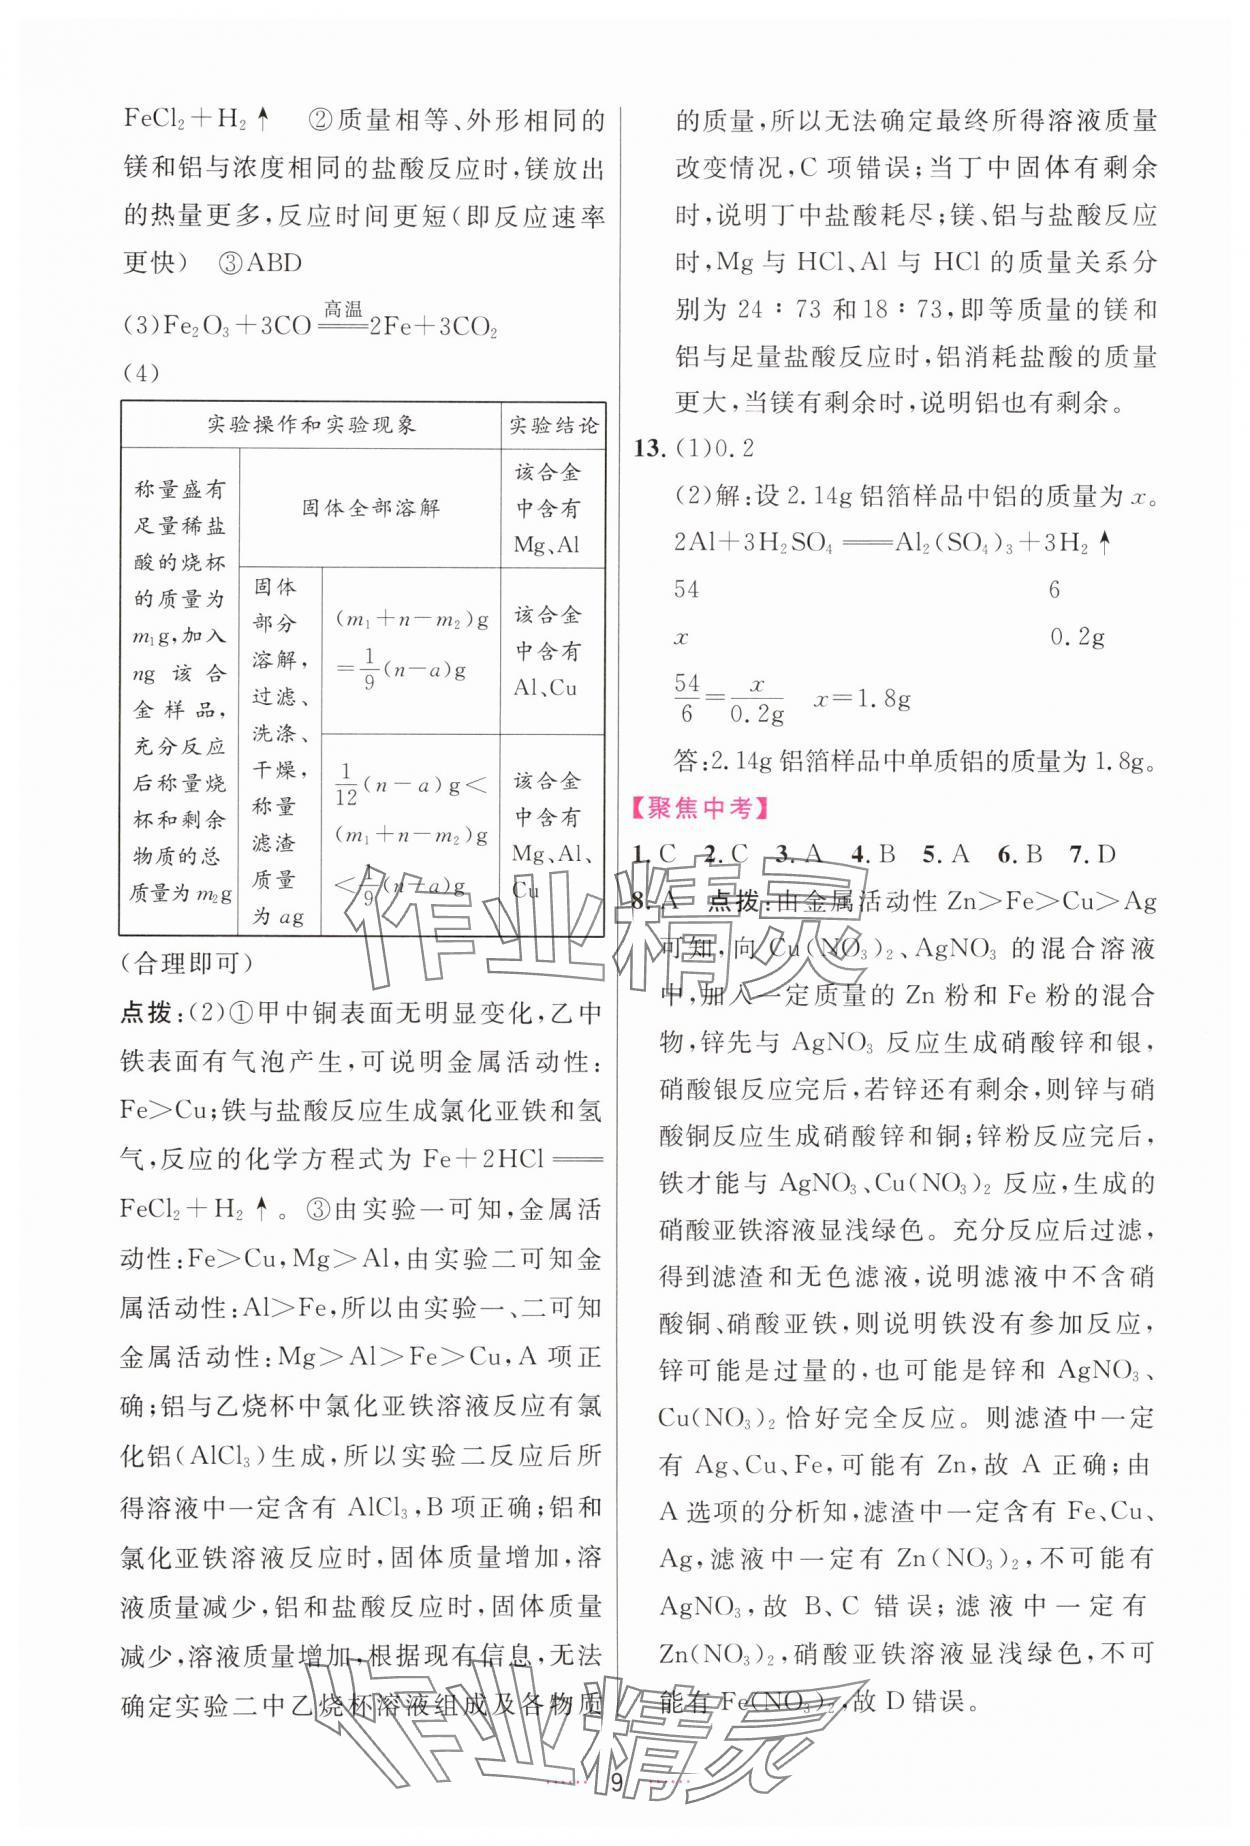 FeCl₂＋H₂↑　②质量相等、外形相同的
镁和铝与浓度相同的盐酸反应时,镁放出
的热量更多,反应时间更短(即反应速率
更快)　③ABD
(3)Fe₂O₃＋3CO 高温══ 2Fe＋3CO₂
(4)
实验操作和实验现象　实验结论
称量盛有
足量稀盐
酸的烧杯
的质量为
m₁g,加入
ng 该 合
金样品,
充分反应
后称量烧
杯和剩余
物质的总
质量为 m₂g
固体全部溶解
该合金
中含有
Mg、Al
固体
部分
溶解,
过滤、
洗涤、
干燥,
称量
滤渣
质量
为 ag
(m₁＋n－m₂)g
＝1/9(n－a)g
该合金
中含有
Al、Cu
1/12(n－a)g＜
(m₁＋n－m₂)g
＜1/9(n－a)g
该合金
中含有
Mg、Al、
Cu
(合理即可)
点拨:(2)①甲中铜表面无明显变化,乙中
铁表面有气泡产生,可说明金属活动性:
Fe＞Cu;铁与盐酸反应生成氯化亚铁和氢
气,反应的化学方程式为 Fe＋2HCl══
FeCl₂＋H₂↑。③由实验一可知,金属活
动性:Fe＞Cu,Mg＞Al,由实验二可知金
属活动性:Al＞Fe,所以由实验一、二可知
金属活动性:Mg＞Al＞Fe＞Cu,A 项正
确;铝与乙烧杯中氯化亚铁溶液反应有氯
化铝(AlCl₃)生成,所以实验二反应后所
得溶液中一定含有 AlCl₃,B 项正确;铝和
氯化亚铁溶液反应时,固体质量增加,溶
液质量减少,铝和盐酸反应时,固体质量
减少,溶液质量增加,根据现有信息,无法
确定实验二中乙烧杯溶液组成及各物质
的质量,所以无法确定最终所得溶液质量
改变情况,C 项错误;当丁中固体有剩余
时,说明丁中盐酸耗尽;镁、铝与盐酸反应
时,Mg 与 HCl、Al 与 HCl 的质量关系分
别为 24∶73 和 18∶73,即等质量的镁和
铝与足量盐酸反应时,铝消耗盐酸的质量
更大,当镁有剩余时,说明铝也有剩余。
13. (1)0.2
(2)解:设 2.14g 铝箔样品中铝的质量为 x。
2Al＋3H₂SO₄══Al₂(SO₄)₃＋3H₂↑
54　6
x　0.2g
54/6＝x/0.2g　x＝1.8g
答:2.14g 铝箔样品中单质铝的质量为 1.8g。
【聚焦中考】
1. C　2. C　3. A　4. B　5. A　6. B　7. D
8. A　点拨:由金属活动性 Zn＞Fe＞Cu＞Ag
可知,向 Cu(NO₃)₂、AgNO₃ 的混合溶液
中,加入一定质量的 Zn 粉和 Fe 粉的混合
物,锌先与 AgNO₃ 反应生成硝酸锌和银,
硝酸银反应完后,若锌还有剩余,则锌与硝
酸铜反应生成硝酸锌和铜;锌粉反应完后,
铁才能与 AgNO₃、Cu(NO₃)₂ 反应,生成的
硝酸亚铁溶液显浅绿色。充分反应后过滤,
得到滤渣和无色滤液,说明滤液中不含硝
酸铜、硝酸亚铁,则说明铁没有参加反应,
锌可能是过量的,也可能是锌和 AgNO₃、
Cu(NO₃)₂ 恰好完全反应。则滤渣中一定
有 Ag、Cu、Fe,可能有 Zn,故 A 正确;由
A 选项的分析知,滤渣中一定含有 Fe、Cu、
Ag,滤液中一定有 Zn(NO₃)₂,不可能有
AgNO₃,故 B、C 错误;滤液中一定有
Zn(NO₃)₂,硝酸亚铁溶液显浅绿色,不可
能有 Fe(NO₃)₂,故 D 错误。
作业精灵
作业精灵
9